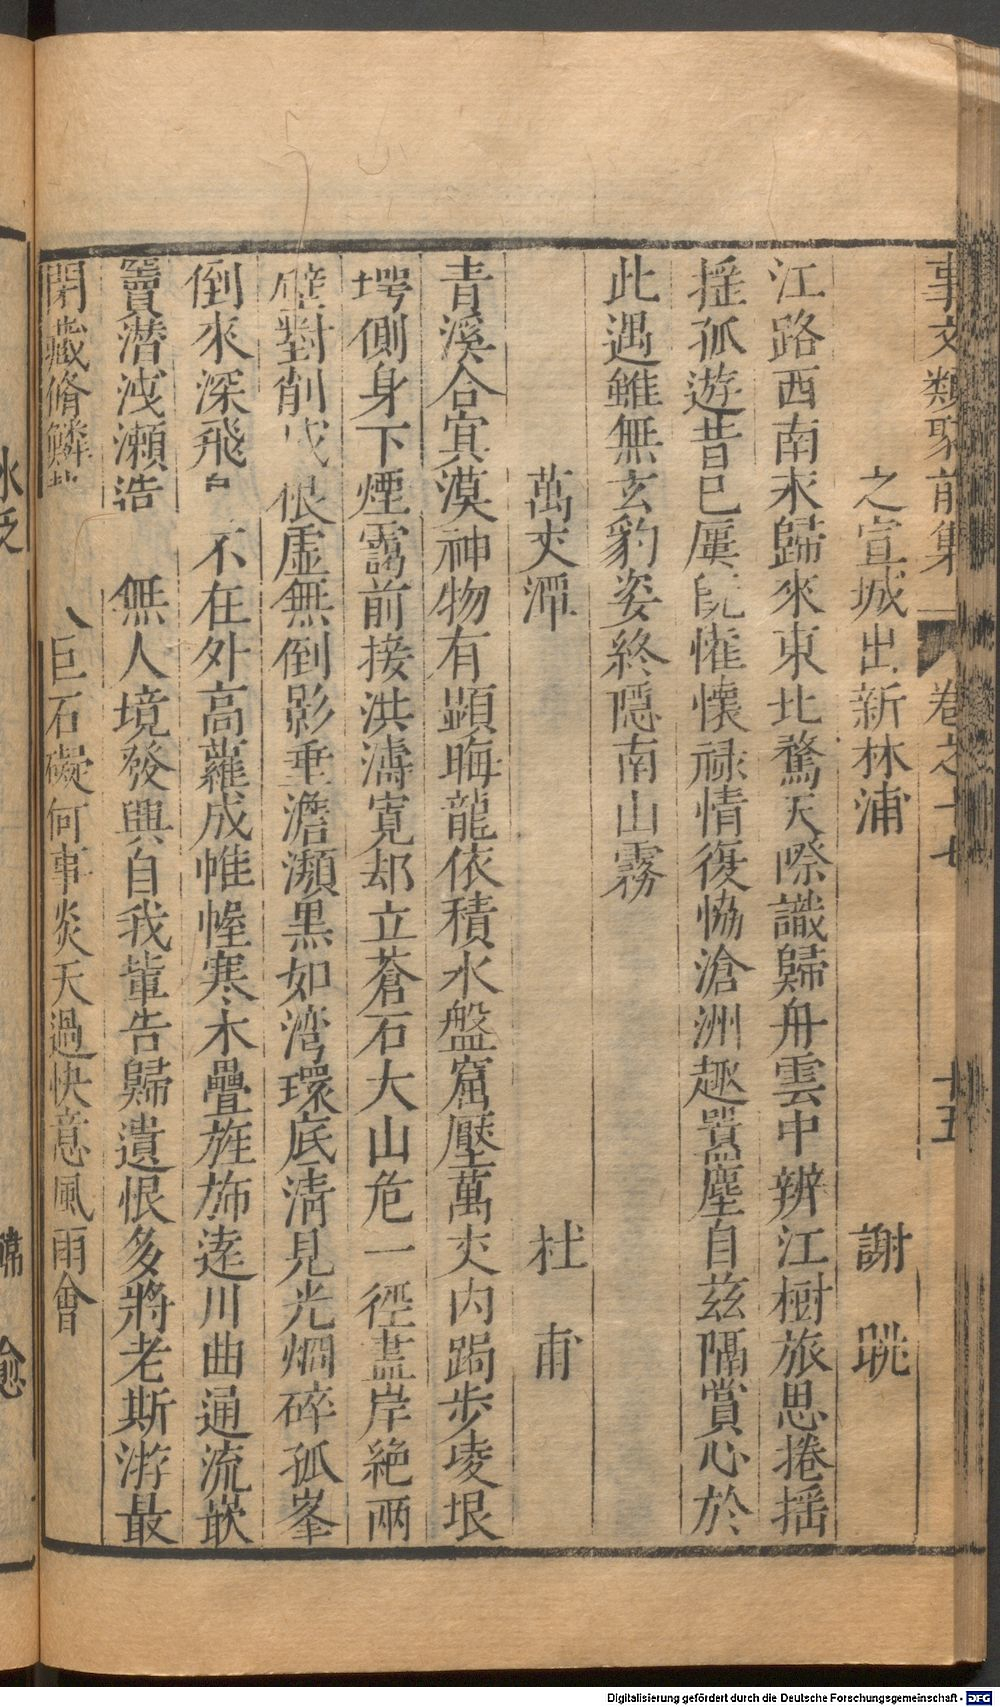 事文類聚前集 卷之十七 十五
之宣城出新林浦 謝 眺
江路西南永歸來東北騖天際識歸舟雲中辨江樹旅思捲揺
揺孤遊昔已屢旣懽懷禄情復恊滄洲趣囂塵自兹隔賞心於
此遇雖無玄豹姿終隱南山霧
萬丈潭 杜 甫
青溪合㝠漠神物有顯晦龍依積水盤窟壓萬丈内跼步凌垠
堮側身下煙靄前接洪濤寛却立蒼石大山危一徑盡岸絶兩
壁對削成根虚無倒影垂澹瀩黒如湾環底淸見光烱碎孤峯
倒來深飛 不在外高蘿成帷幄寒木疊旌斾逺川曲通流嵌
竇潜洩瀬造 無人境發興自我輩告歸遺恨多將老斯游最
閉藏脩鱗 巨石礙何事炎天過快意風雨會
水
愈
Digitalisierung gefördert durch die Deutsche Forschungsgemeinschaft - DFG